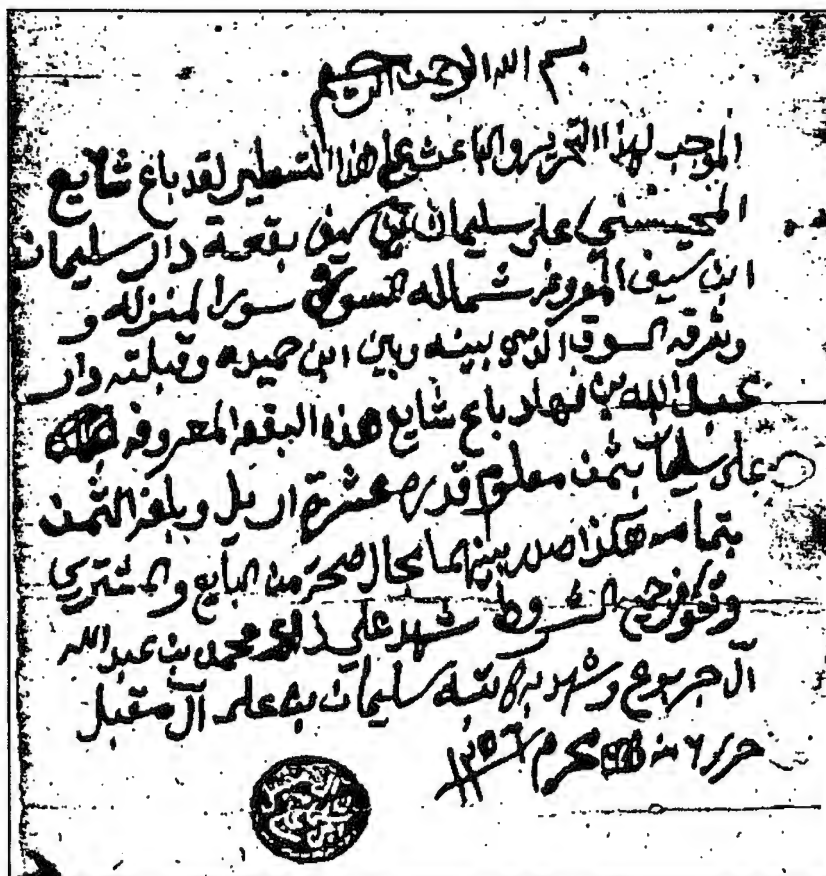 بسم الله الرحمن الرحيم
الموجب لهذا التحرير والباعث على هذا التسطير لقد باع شايع
المحيسني على سليمان بن سيف بقعة دار سليمان
ابن سيف المعروفه شماله السوق سور المنزله و
وشرقه السوق الذي بينه وبين ابن حميده وقبلته دار
عبد الله بن فهاد باع شايع هذه البقعه المعروفه
على سليمان بثمن معلوم قدره عشرة اريل وبلغه الثمن
بتمامه هكذا صدر بينهما بحال صحة من البايع والمشتري
وتوفر جميع الشروط شهد على ذلك محمد بن عبد الله
آل جربوع وشهد به كاتبه سليمان بن علي آل مقبل
حرر ٦ من محرم ١٣٥٦